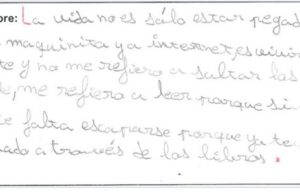 bre: La vida no es sólo estar pegad
maquinita y a internet, es vivir
te y no me refiero a saltar las
e, me refiero a leer porque si
te falta escaparse porque ya te
ado a través de los libros.